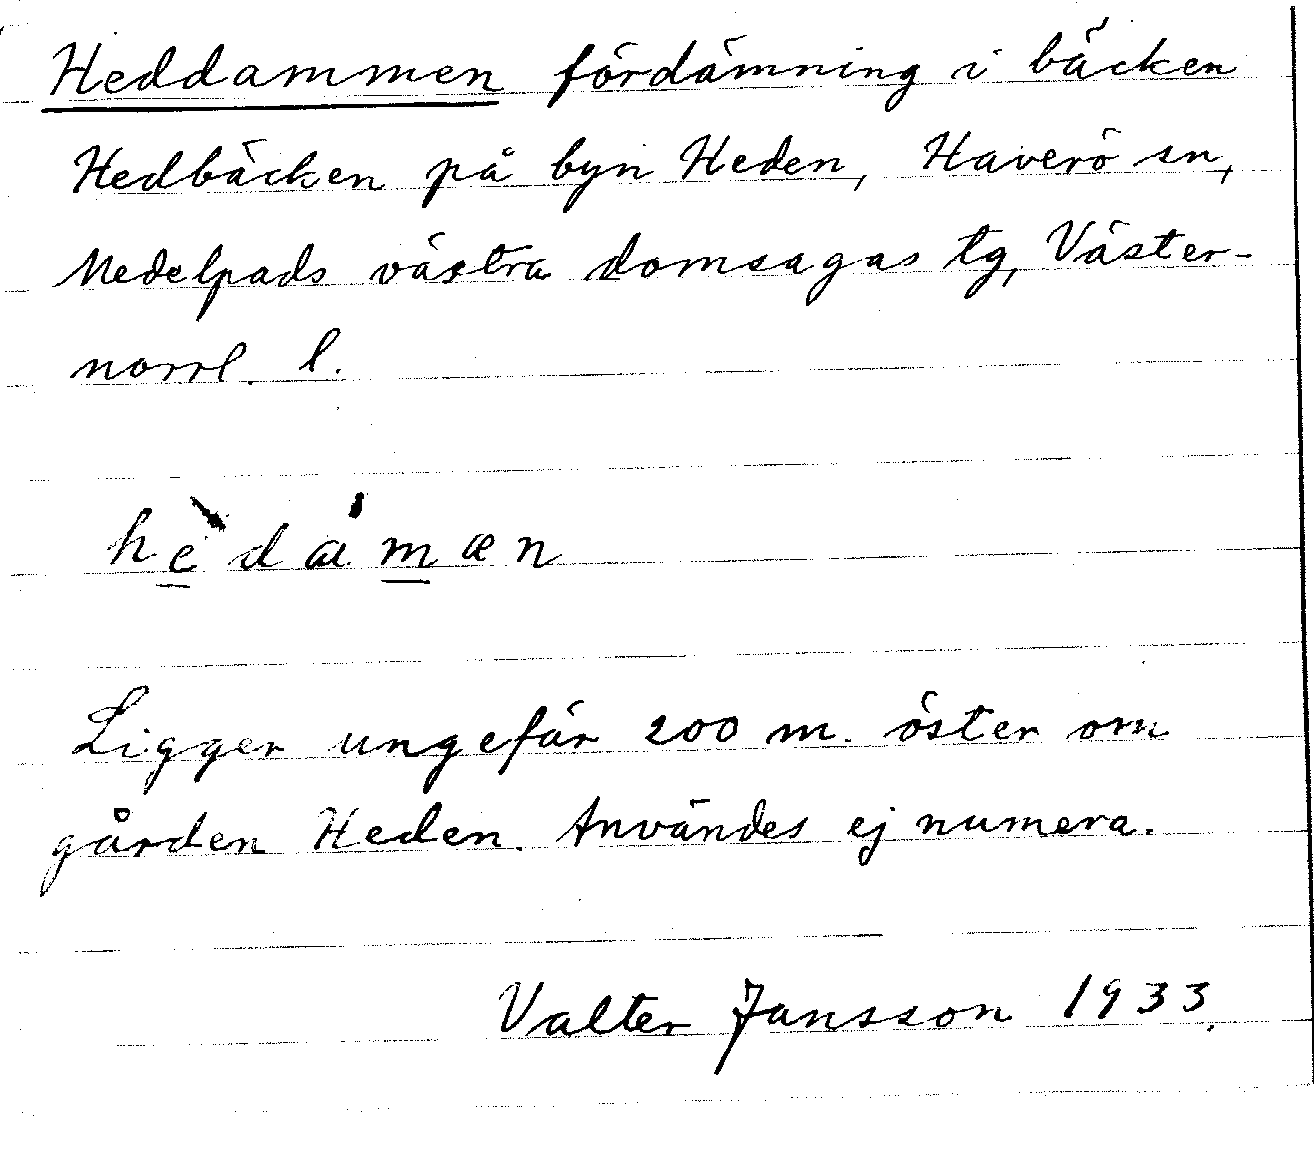 Heddammen fördämning i bäcken
Hedbäcken på byn Heden, Haverö sn,
Medelpads västra domsagas tg, Väster-
norrl. l.
hèdám̲æn
Ligger ungefär 200 m. öster om
gården Heden. Användes ej numera.
Valter Jansson 1933.